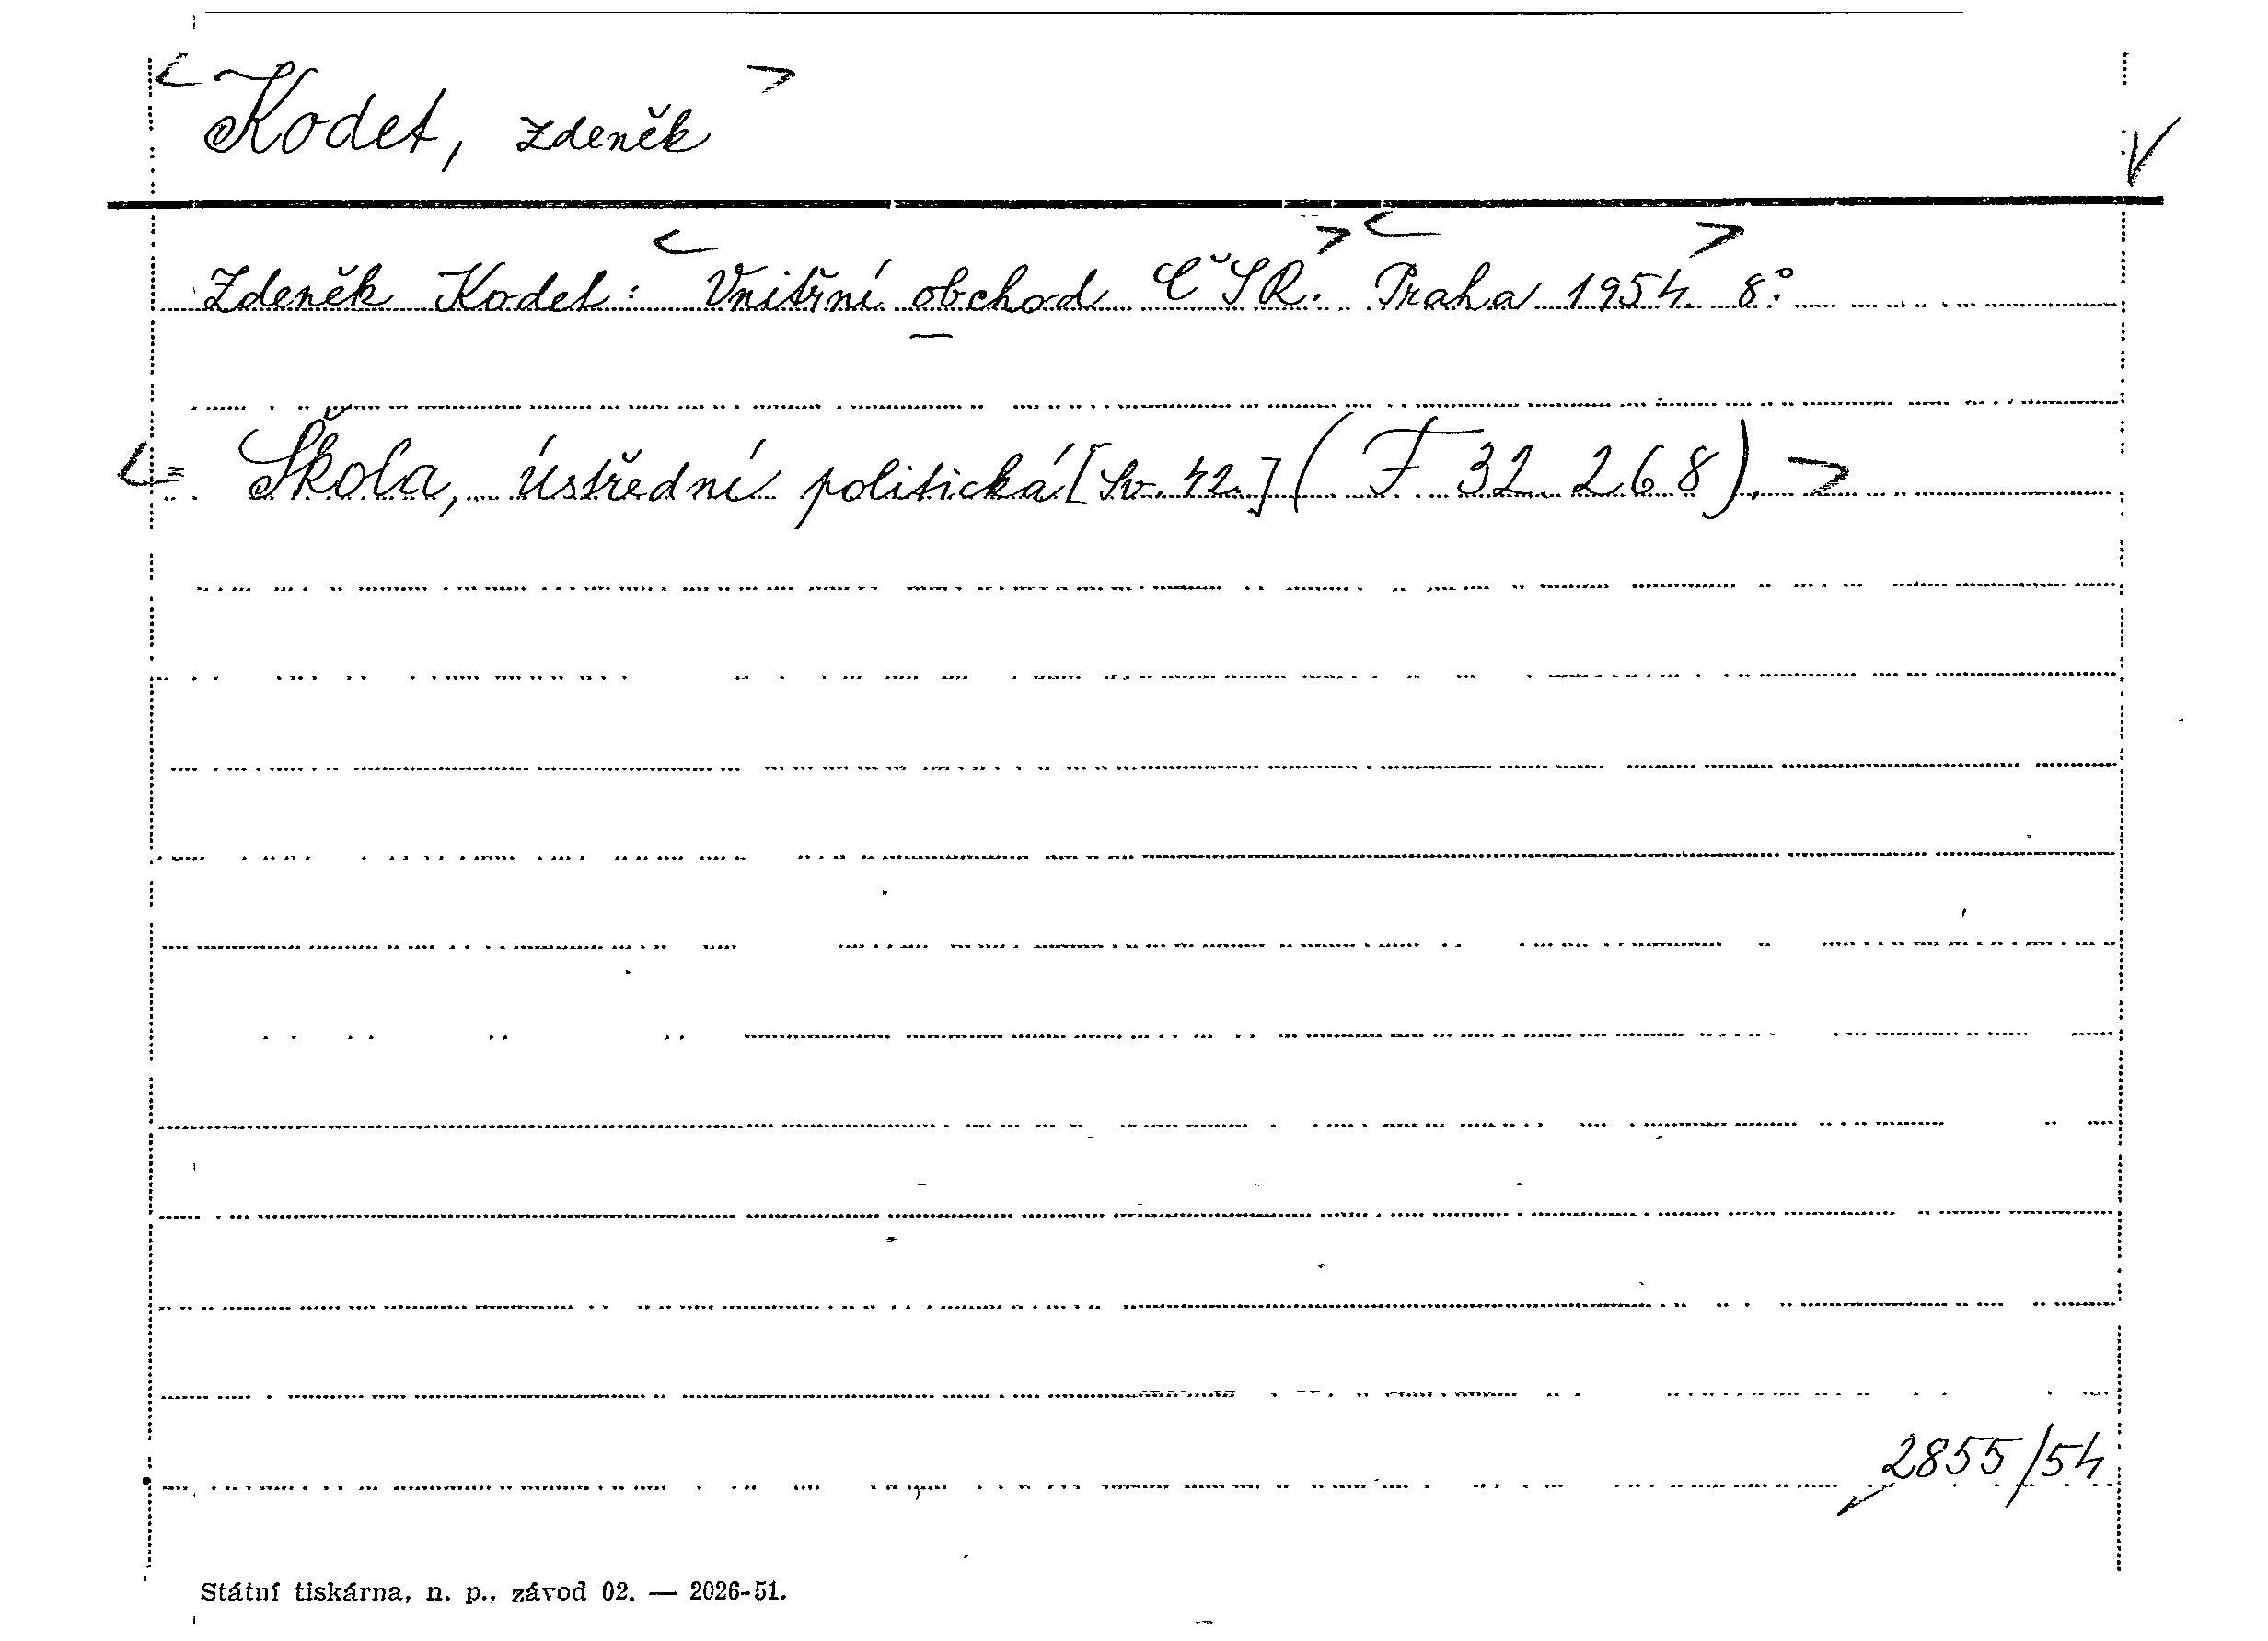 < Kodet, Zdeněk >
V
Zdeněk Kodet: < Vnitřní obchod ČSR. > < Praha 1954 > 8°.
< = Škola, ústřední politická [Sv. 42.] (F 32.268). >
2855/54
Státní tiskárna, n. p., závod 02. — 2026-51.